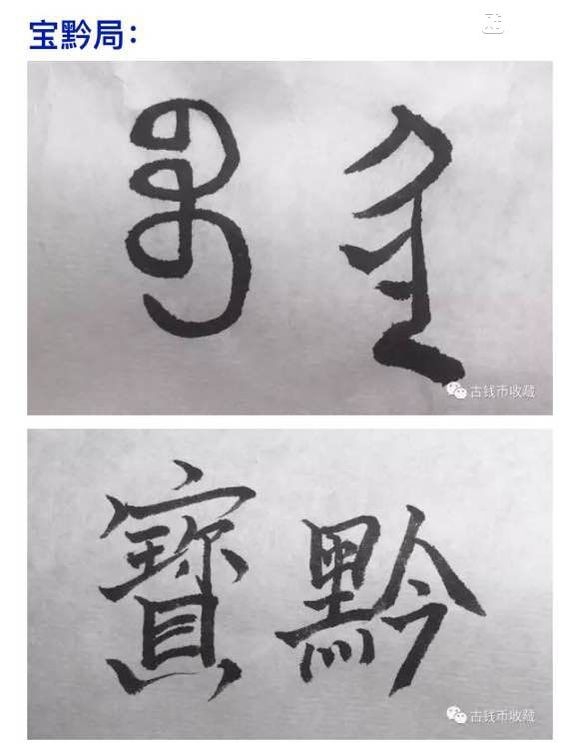 宝黔局：
ᠪᠣᠣ
古钱币收藏
寳黔
古钱币收藏